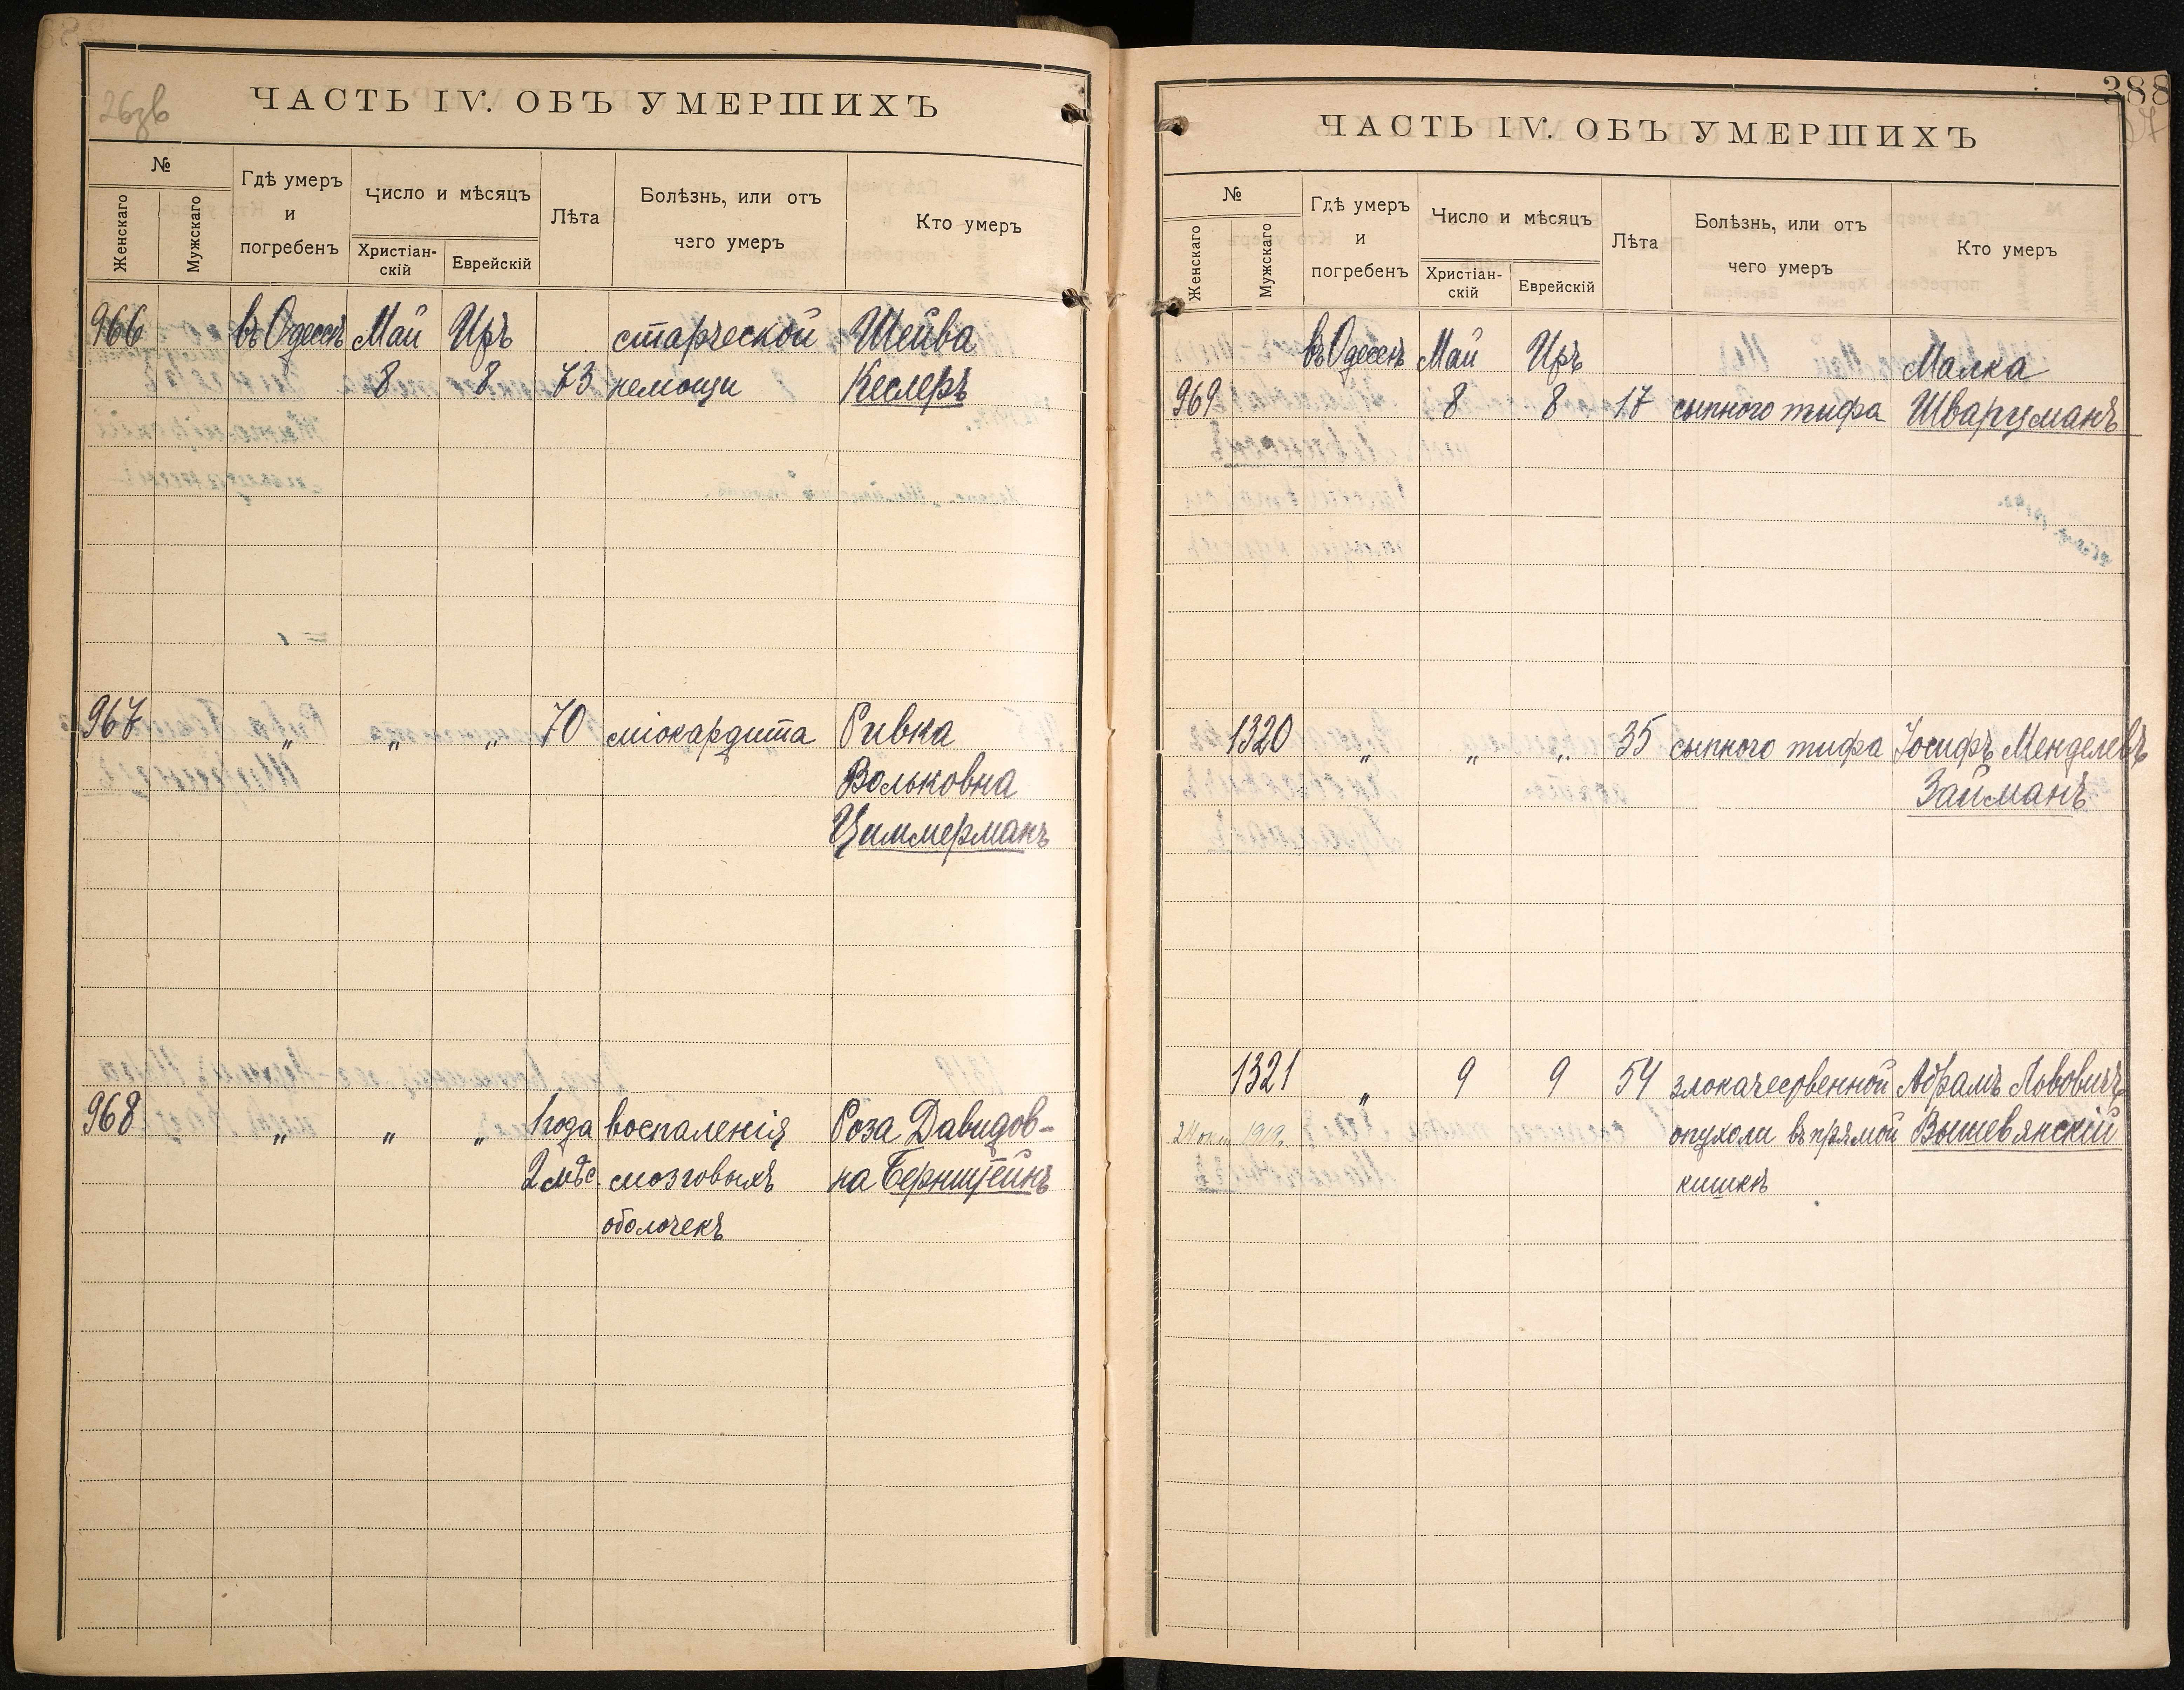 26зв
ЧАСТЬ IV. ОБЪ УМЕРШИХЪ
№
Женскаго
Мужскаго
Гдѣ умеръ
и
погребенъ
Число и мѣсяцъ
Христіан-
скій
Еврейскій
Лѣта
Болѣзнь, или отъ
чего умеръ
Кто умеръ
966 въ Одессѣ Май Иръ старческой Шейва
8 8 73 немощи Кеслеръ
967 „ „ „ 70 міокардита Ривка
Вольковна
Циммерманъ
968 „ „ „ 1 года воспаленія Роза Давидов-
2 мѣс. мозговыхъ на Бернштейнъ
оболочекъ
388
27
ЧАСТЬ IV. ОБЪ УМЕРШИХЪ
№
Женскаго
Мужскаго
Гдѣ умеръ
и
погребенъ
Число и мѣсяцъ
Христіан-
скій
Еврейскій
Лѣта
Болѣзнь, или отъ
чего умеръ
Кто умеръ
въ Одессѣ Май Иръ Малка
969 8 8 17 сыпного тифа Шварцманъ
1320 „ „ „ 35 сыпного тифа Іосифъ Менделевъ
Займанъ
1321 „ 9 9 54 злокачественной Абрамъ Львовичъ
24 1919. опухоли въ прямой Вышевянскій
кишкѣ